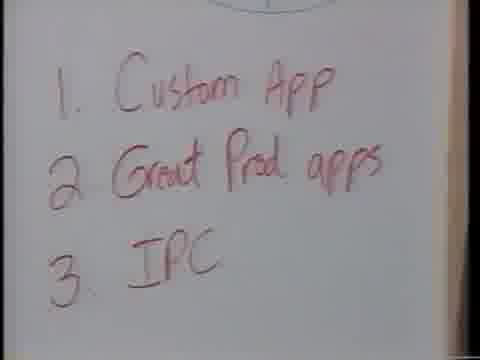 1. Custom App
2 Great Prod. apps
3. IPC